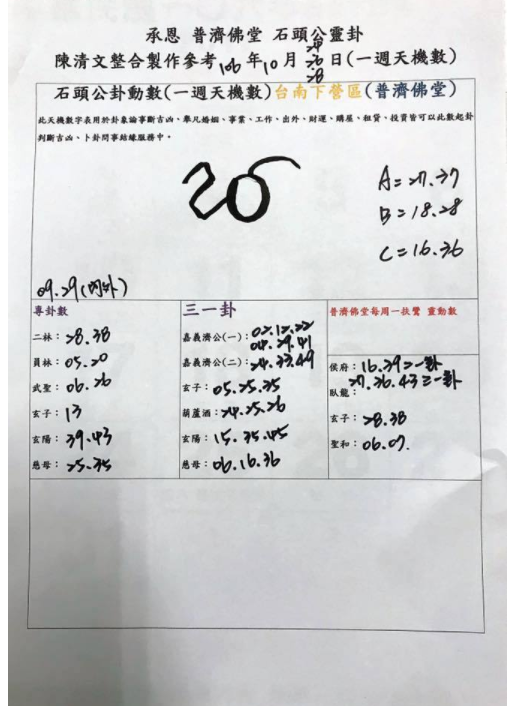 承恩 普濟佛堂 石頭公靈卦
陳清文整合製作參考106年10月24.26.28日(一週天機數)
石頭公卦動數(一週天機數)台南下營區(普濟佛堂)
此天機數字表用於卦象論事斷吉凶、舉凡婚姻、事業、工作、出外、財運、購屋、租賃、投資皆可以此數起卦
判斷吉凶、卜卦問事結緣服務中。
A=27.37
B=18.28
C=16.36
09.29(內外)
專卦數
二林:28.38
員林:05.20
武聖:06.26
玄子:13
玄陽:39.43
慈母:25.35
三一卦
嘉義濟公(一):02.12.22
04.29.41
嘉義濟公(二):24.33.49
玄子:05.25.35
葫蘆酒:24.25.26
玄陽:15.35.45
慈母:06.16.36
普濟佛堂每周一扶鸞 靈動數
侯府:16.39二一卦
27.36.43三一卦
臥龍:
玄子:28.38
聖和:06.07.